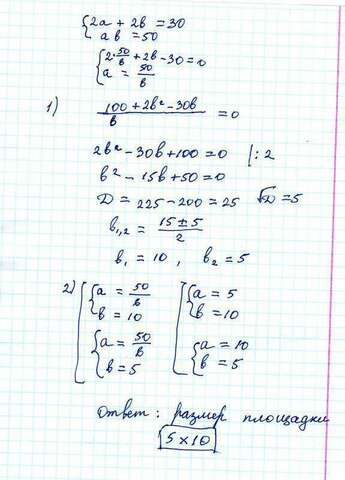 {2a + 2b = 30
ab = 50
{2·50/b + 2b - 30 = 0
a = 50/b
1) (100 + 2b² - 30b)/b = 0
2b² - 30b + 100 = 0 |: 2
b² - 15b + 50 = 0
D = 225 - 200 = 25 √D = 5
b₁,₂ = (15 ± 5)/2
b₁ = 10 , b₂ = 5
2) [{a = 50/b [{a = 5
b = 10 b = 10
{a = 50/b {a = 10
b = 5 b = 5
Ответ : размер площадки
5 × 10